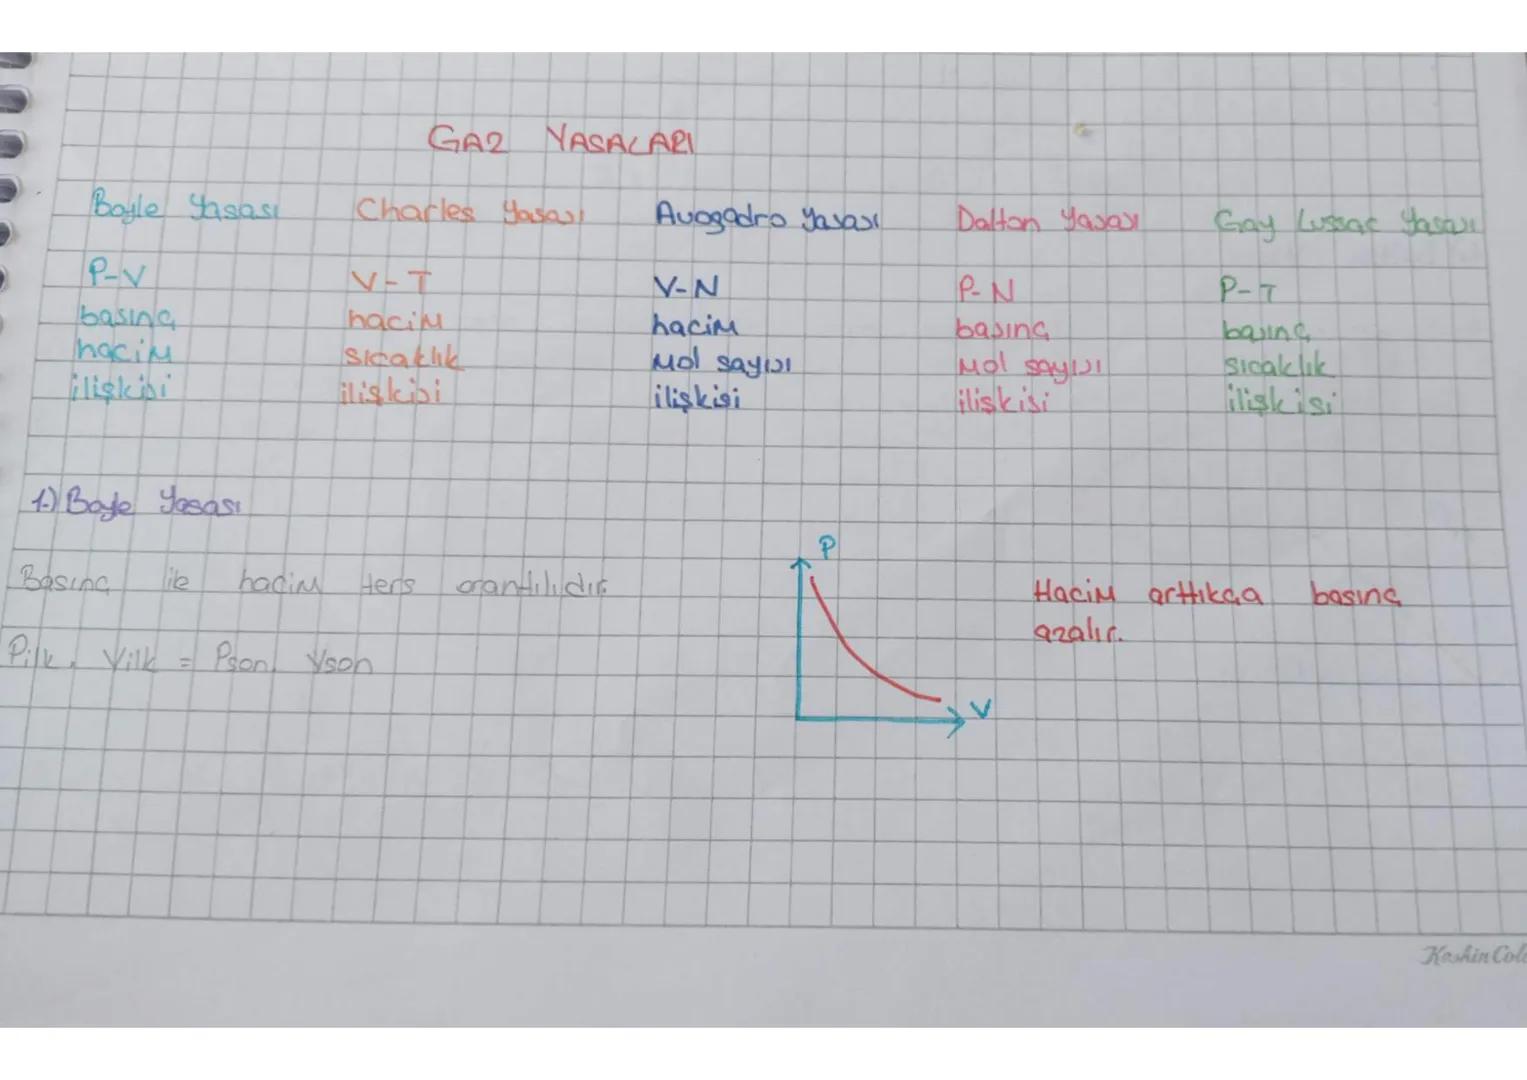 GAZ YASALARI
Boyle Yasası
Charles Yasası
Avogadro Yasası
Dalton Yasası
Gay Lussac Yasası
P-V
basınç
hacim
ilişkisi
V-T
hacim
sıcaklık
ilişkisi
V-N
hacim
mol sayısı
ilişkisi
P-N
basınç
mol sayısı
ilişkisi
P-T
basınç
sıcaklık
ilişkisi
1.) Boyle Yasası
Basınç ile hacim ters orantılıdır.
Pilk. Vilk = Pson. Vson
P
V
Hacim arttıkça basınç
azalır.